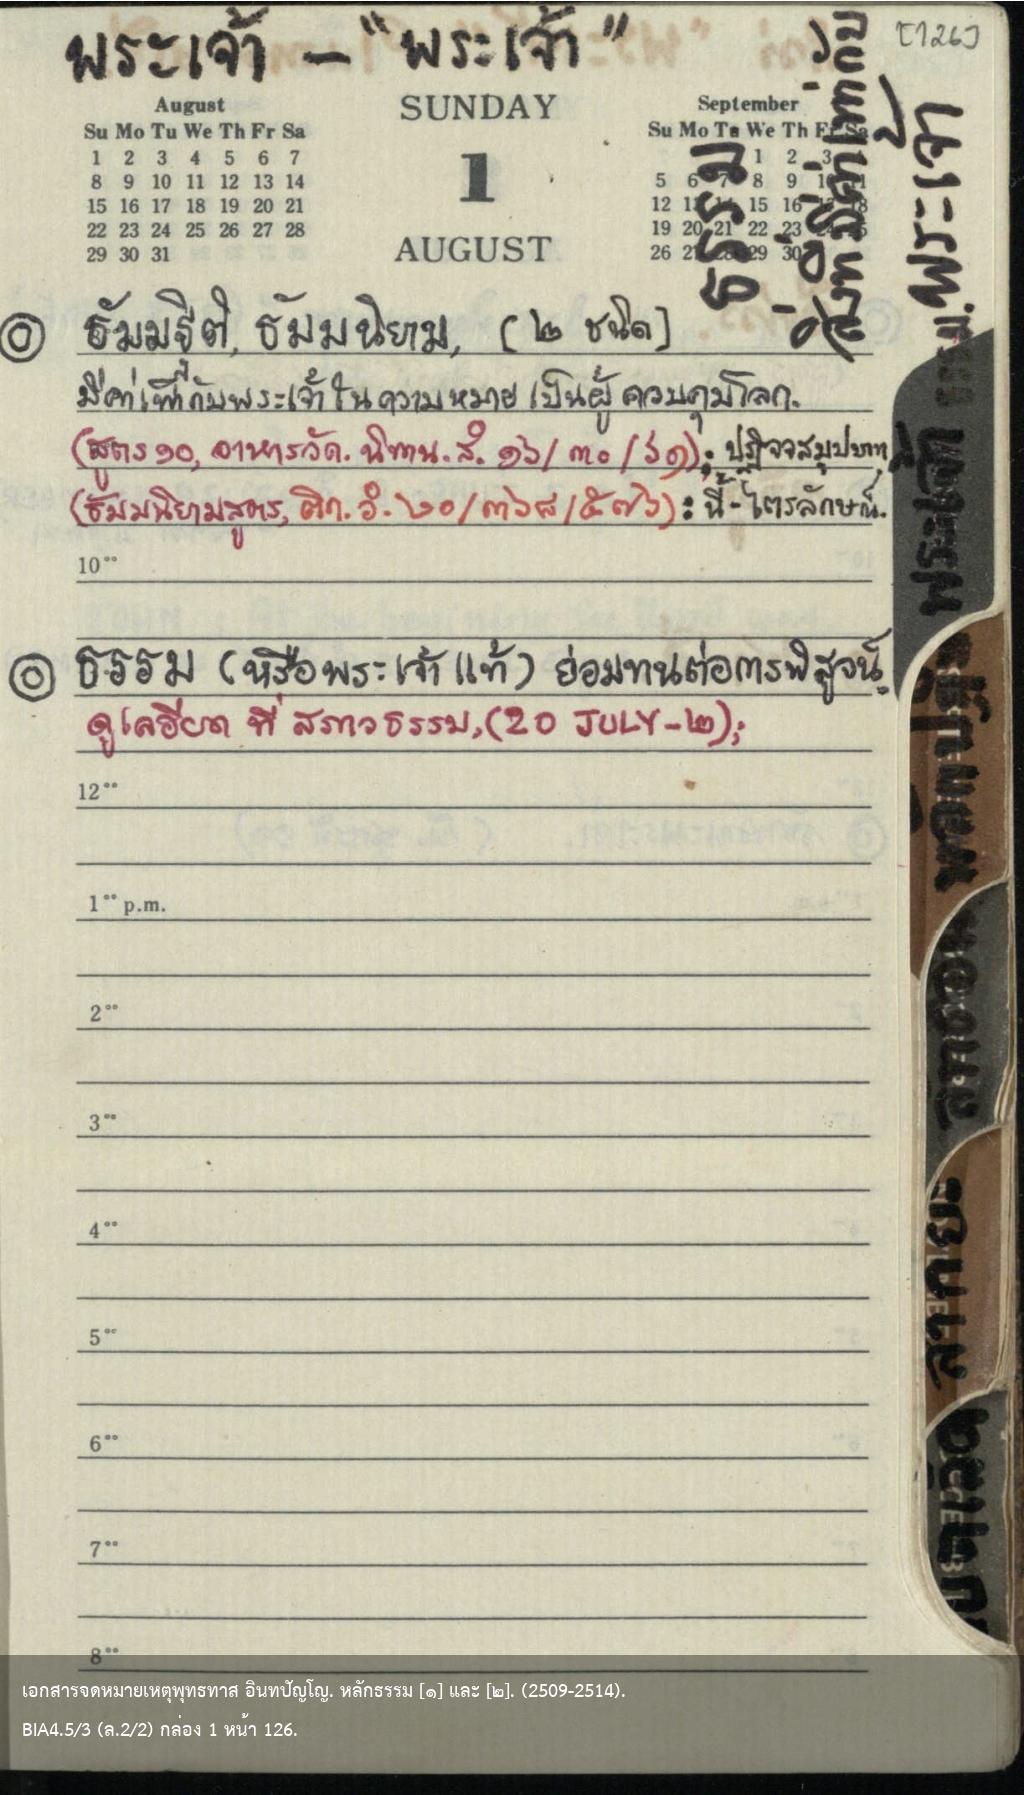 [126]
พระเจ้า – "พระเจ้า"
August
Su Mo Tu We Th Fr Sa
1 2 3 4 5 6 7
8 9 10 11 12 13 14
15 16 17 18 19 20 21
22 23 24 25 26 27 28
29 30 31
SUNDAY
1
AUGUST
September
Su Mo Tu We Th Fr Sa
1 2 3
5 6 7 8 9 10 11
12 13 14 15 16 17 18
19 20 21 22 23 24 25
26 27 28 29 30
ธรรม
พระเจ้า
ธัมมฐีติ, ธัมมนิยาม, (๒ ชนิด)
มีค่าเท่ากับพระเจ้าในความหมายเป็นผู้ควบคุมโลก.
(สูตร๑๐, อาหารวัค. นิทาน. สํ. ๑๖/๓๐/๖๑); ปฏิจจสมุปบาท,
(ธัมมนิยามสูตร, ติก. อํ. ๒๐/๓๖๘/๕๗๖): นี้-ไตรลักษณ์.
10⁰⁰
ธรรม (หรือพระเจ้าแท้) ย่อมทนต่อการพิสูจน์.
ดูเลอียด ที่ สภาวธรรม, (20 JULY-๒);
12⁰⁰
1⁰⁰ p.m.
2⁰⁰
3⁰⁰
4⁰⁰
5⁰⁰
6⁰⁰
7⁰⁰
8⁰⁰
เอกสารจดหมายเหตุพุทธทาส อินทปัญโญ. หลักธรรม [๑] และ [๒]. (2509-2514).
BIA4.5/3 (ล.2/2) กล่อง 1 หน้า 126.